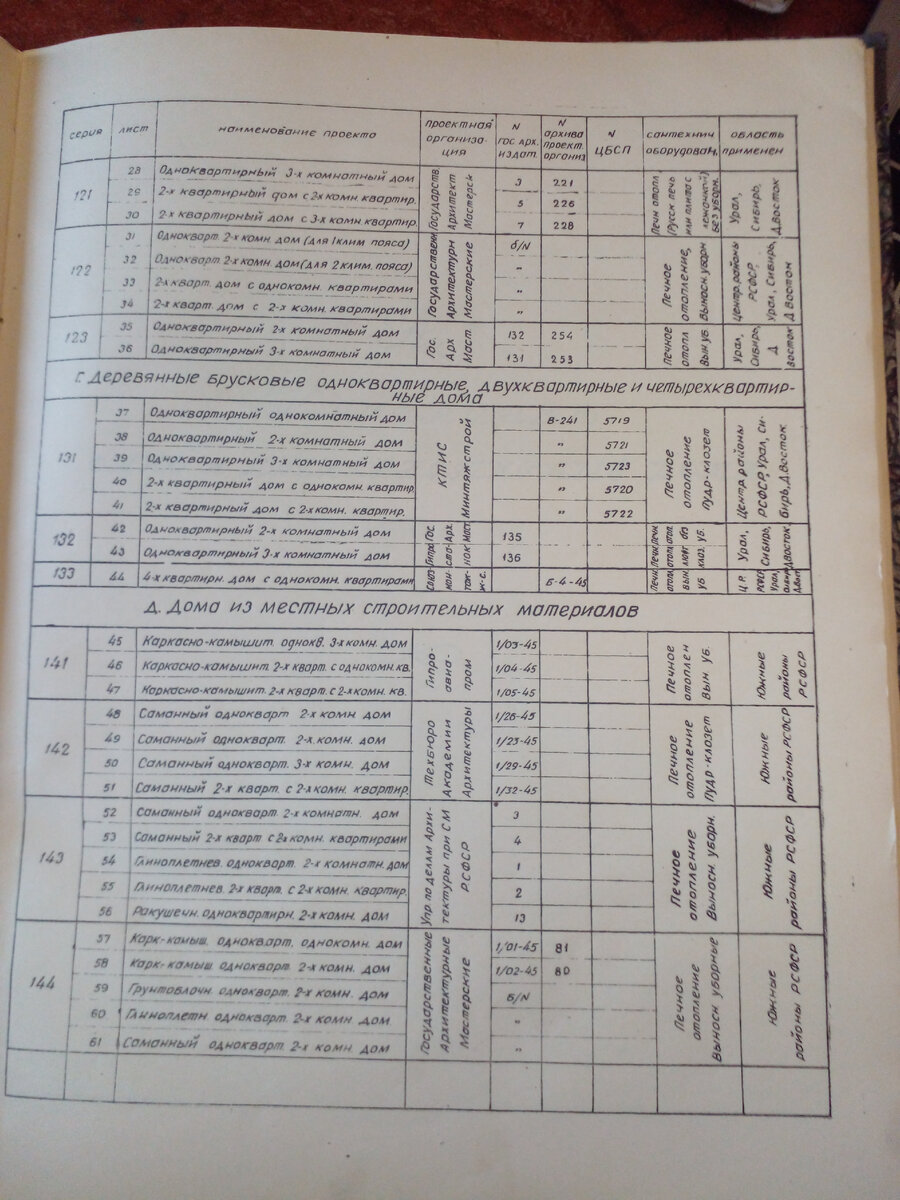 серия лист наименование проекта проектная организация N гос арх. издат. N архива проект. организ N ЦБСП сантехнич оборудован, область применен
121 Государств. Архитект Мастерск Печн отопл (Русск печь или плита с лежанкой) Без уборн. Урал, Сибирь, Д.Восток
28 Одноквартирный 3-х комнатный дом 3 221
29 2-х квартирный дом с 2х комн. квартир. 5 226
30 2-х квартирный дом с 3-х комн. квартир. 7 228
122 Государственн Архитектурн Мастерские Печное отопление, Выносн. уборн Центр. районы РСФСР, Урал, Сибирь, Д Восток
31 Однокварт. 2-х комн. дом (для 1 клим пояса) б/N
32 Однокварт. 2-х комн. дом (для 2 клим. пояса) "
33 2-х кварт. дом с однокомн. квартирами "
34 2-х кварт. дом с 2-х комн. квартирами "
123 Гос. Арх Маст Печное отопл Вын уб. Урал, Сибирь, Д Восток
35 Одноквартирный 2-х комнатный дом 132 254
36 Одноквартирный 3-х комнатный дом 131 253
Г. Деревянные брусковые одноквартирные, двухквартирные и четырехквартир-
ные дома
131 КТИС Минтяжстрой Печное отопление пудр-клозет Центр. районы РСФСР, Урал, Си-бирь, Д.Восток
37 Одноквартирный однокомнатный дом В-241 5719
38 Одноквартирный 2-х комнатный дом " 5721
39 Одноквартирный 3-х комнатный дом " 5723
40 2-х квартирный дом с однокомн. квартир. " 5720
41 2-х квартирный дом с 2-х комн. квартир. " 5722
132 Гос. Арх. Маст. Урал, Сибирь, Д.Восток.
42 Одноквартирный 2-х комнатный дом 135
43 Одноквартирный 3-х комнатный дом 136
133 44 4-х квартирн. дом с однокомн. квартирами Б-4-45
Д. Дома из местных строительных материалов
141 Гипро-авиа-пром Печное отоплен Вын. уб. Южные районы РСФСР
45 Каркасно-камышит. однокв. 3-х комн. дом 1/03-45
46 Каркасно-камышит. 2-х кварт. с однокомн. кв. 1/04-45
47 Каркасно-камышит. 2-х кварт. с 2-х комн. кв. 1/05-45
142 Техбюро Академии Архитектуры Печное отопление Пудр-клозет Южные районы РСФСР
48 Саманный однокварт 2-х комн дом 1/26-45
49 Саманный однокварт. 2-х комн. дом 1/23-45
50 Саманный однокварт. 3-х комн. дом 1/29-45
51 Саманный 2-х кварт. с 2-х комн. квартир. 1/32-45
143 Упр по делам Архи-тектуры при СМ РСФСР Печное отопление Выносн. уборн. Южные районы РСФСР
52 Саманный однокварт 2-х комнатн. дом 3
53 Саманный 2-х кварт с 2х комн. квартирами 4
54 Глиноплетнев. однокварт. 2-х комнатн. дом 1
55 Глиноплетнев. 2-х кварт. с 2-х комн. квартир. 2
56 Ракушечн. одноквартирн. 2-х комн. дом 13
144 Государственные Архитектурные Мастерские Печное отопление Выносн уборные Южные районы РСФСР
57 Карк-камыш. однокварт. однокомн. дом 1/01-45 81
58 Карк-камыш однокварт. 2-х комн. дом 1/02-45 80
59 Грунтоблочн. однокварт. 2-х комн. дом б/N
60 Глиноплетн однокварт. 2-х комн. дом "
61 Саманный однокварт. 2-х комн. дом "